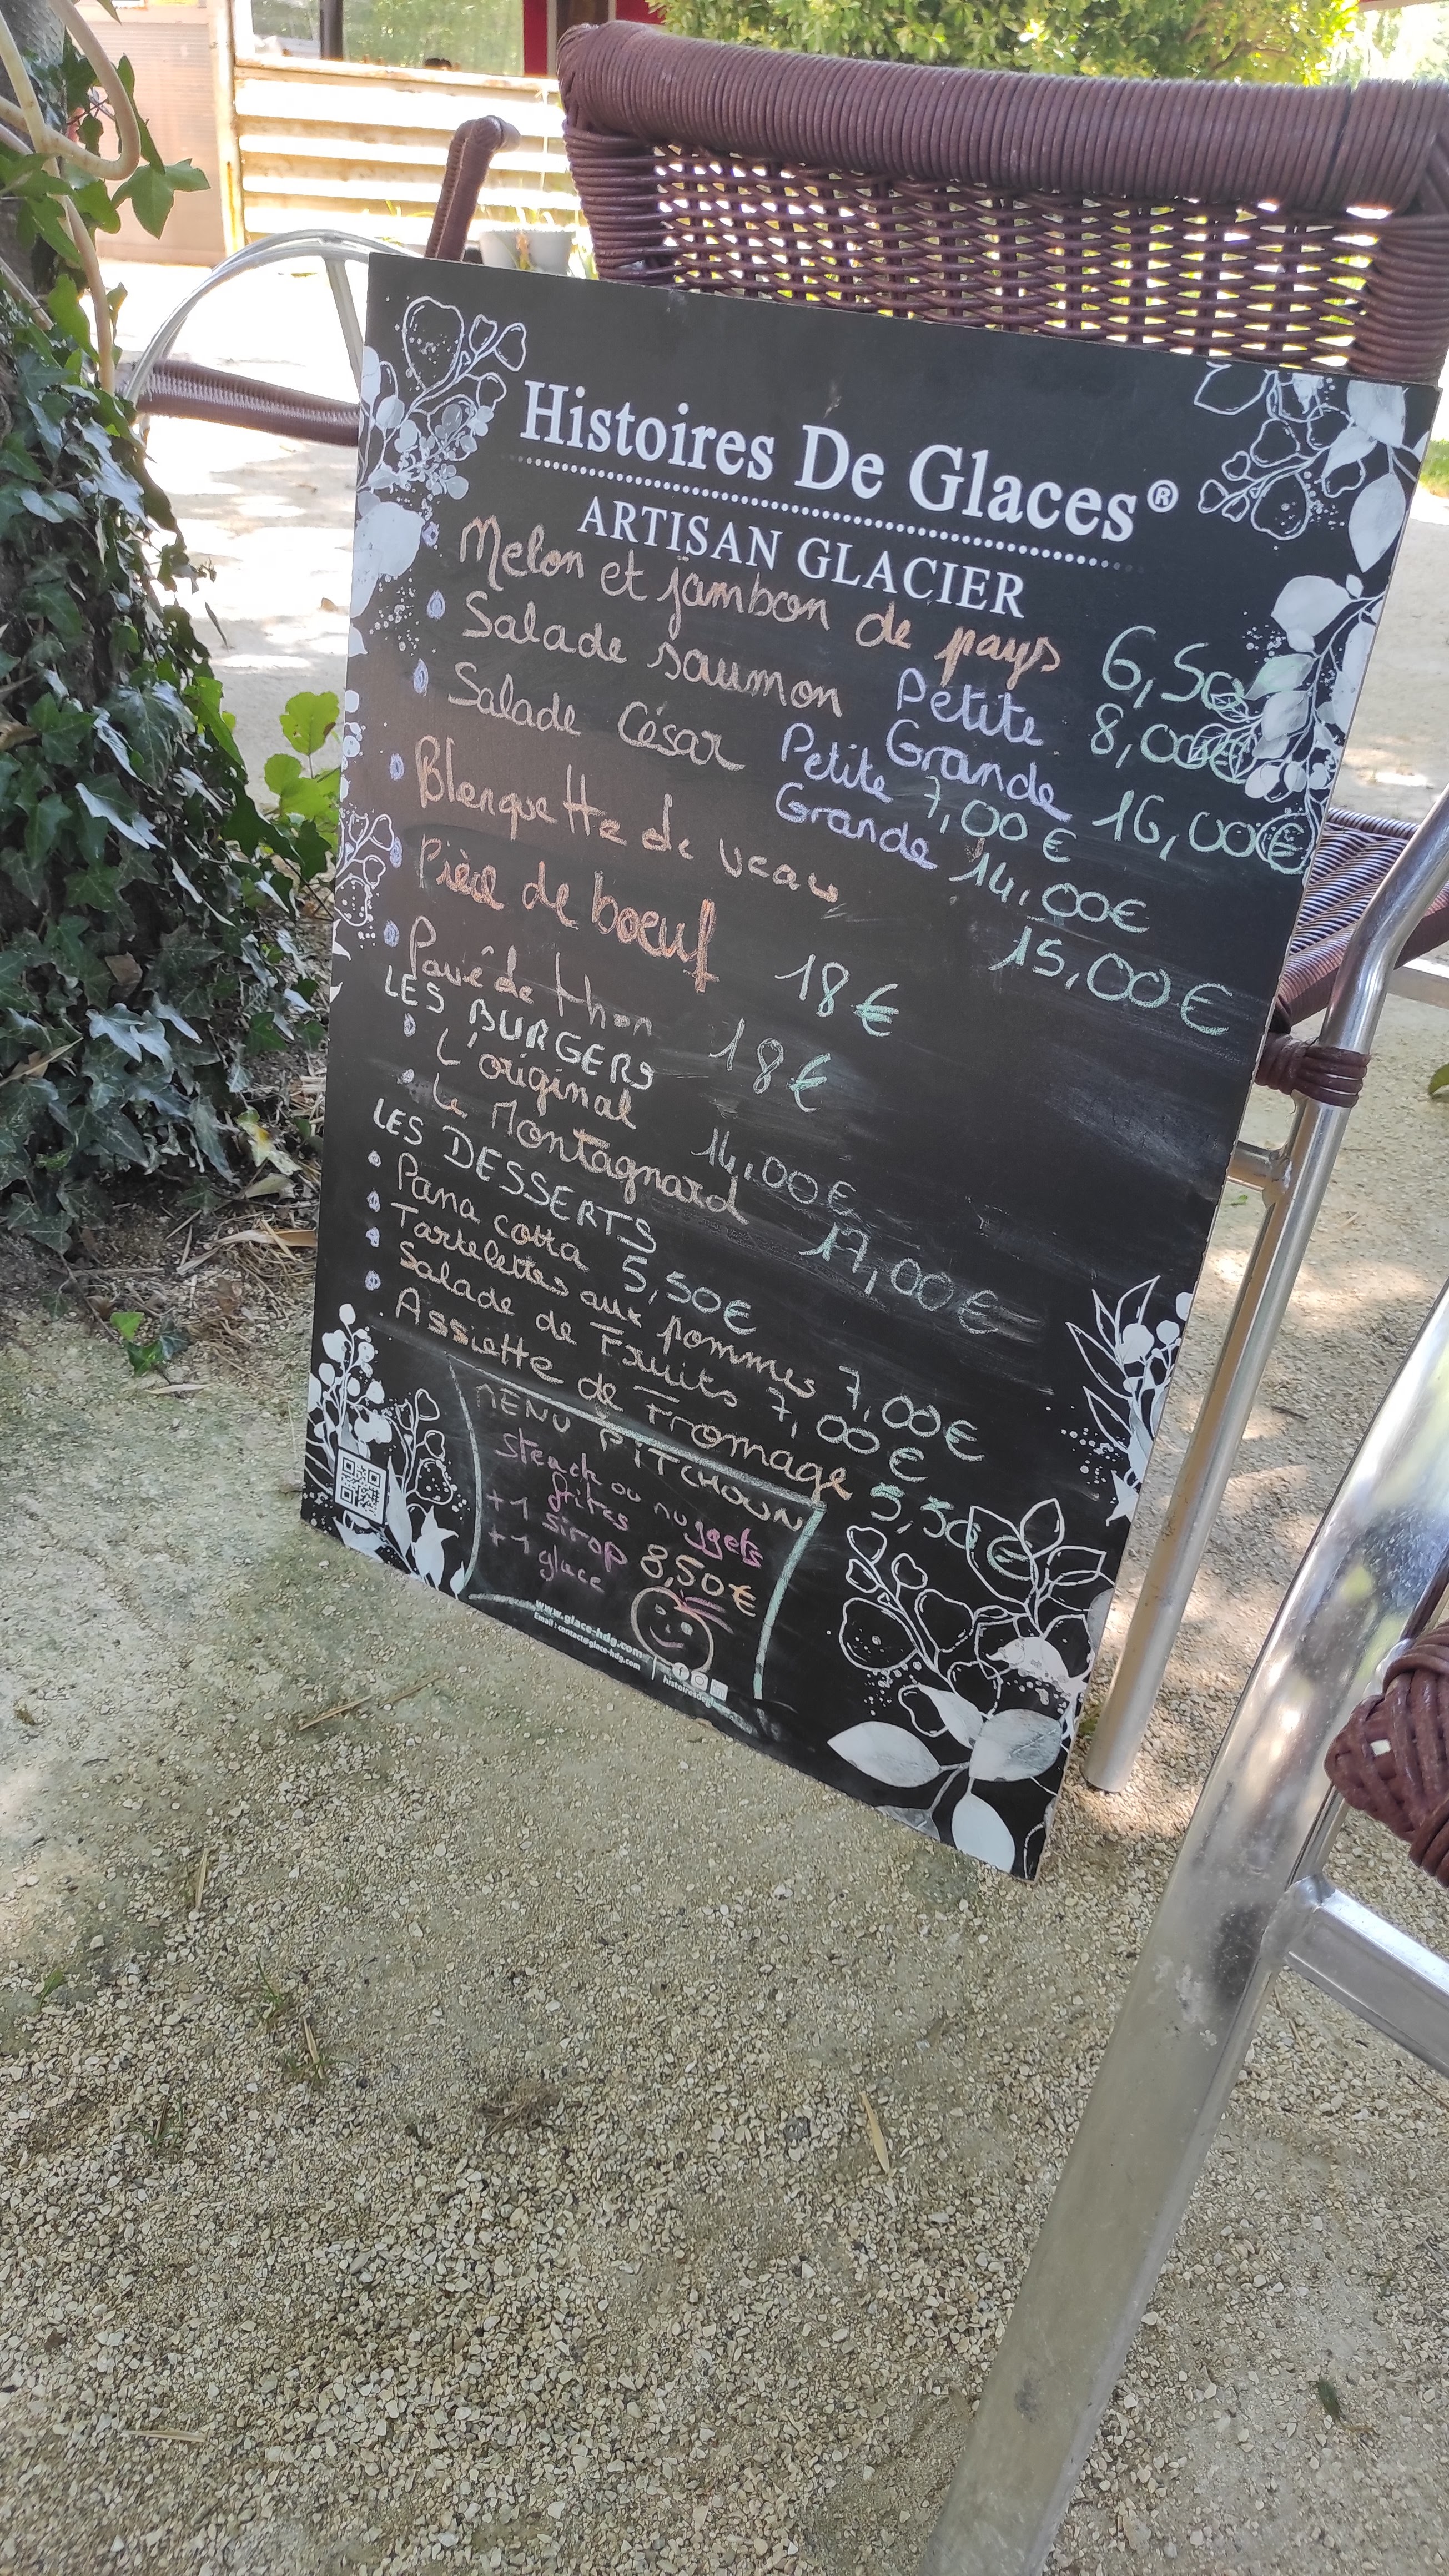 Histoires De Glaces®
ARTISAN GLACIER
Melon et jambon de pays 6,50
Salade saumon Petite 8,00€
Grande 16,00€
Salade César Petite 7,00€
Grande 14,00€
Blenquette de veau 15,00€
Pièce de boeuf 18€
Pavé de thon 18€
LES BURGERS
L'original 14,00€
Le Montagnard 17,00€
LES DESSERTS
Pana cotta 5,50€
Tartelettes aux pommes 7,00€
Salade de Fruits 7,00€
Assiette de Fromage 5,50€
MENU PITCHOUN
Steack ou nuggets
frites
+1 sirop 8,50€
+1 glace
www.glace-hdg.com
Email : contact@glace-hdg.com